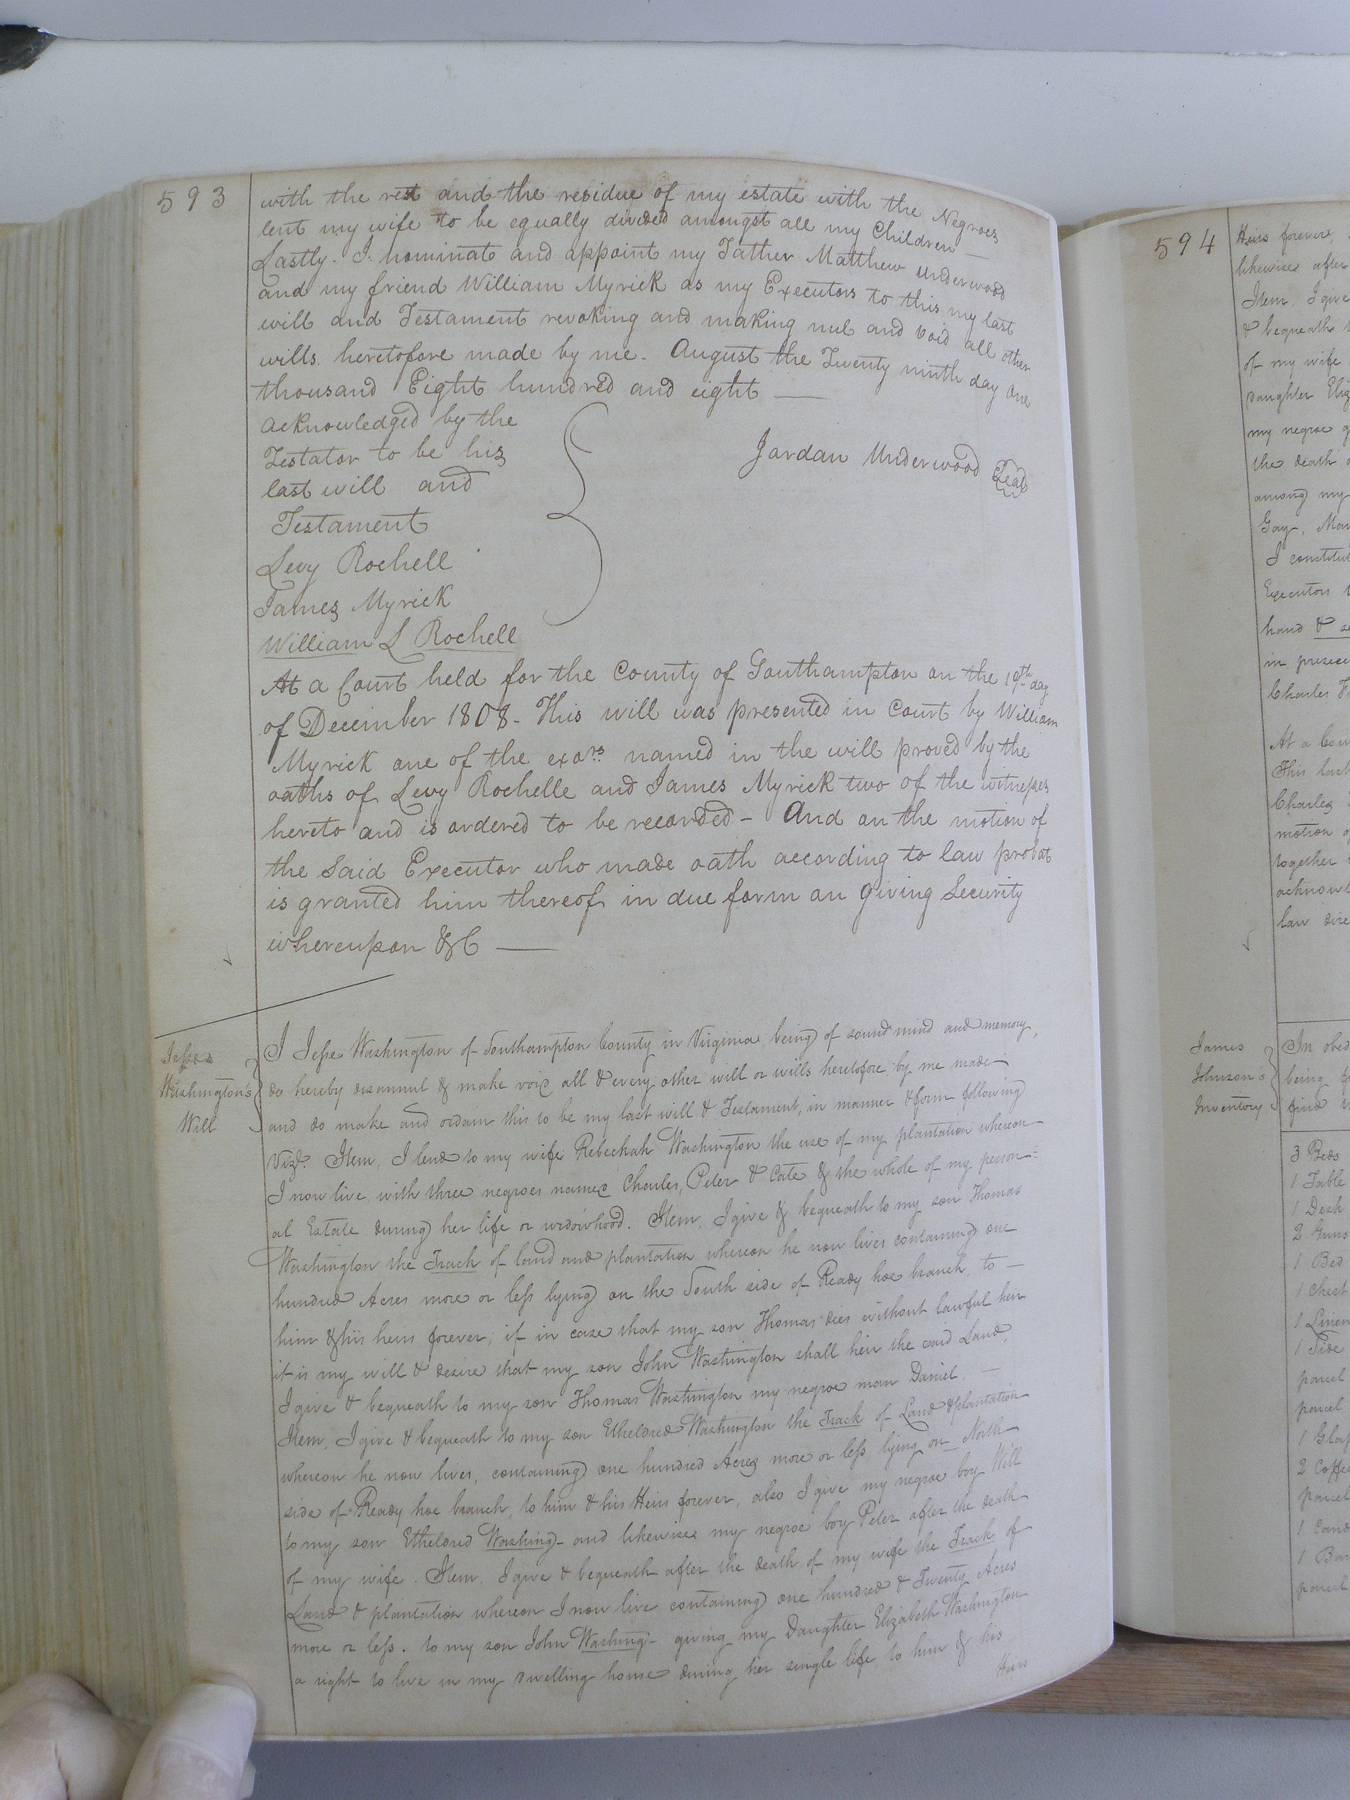 593
with the rest and the residue of my estate with the Negroes
lent my wife to be equally divided amongst all my Children —
Lastly. I nominate and appoint my Father Matthew Underwood
and my friend William Myrick as my Executors to this my last
will and Testament revoking and making nul and void all other
wills heretofore made by me. August the Twenty ninth day one
thousand Eight hundred and eight —
acknowledged by the
Testator to be his
last will and
Testament
Jordan Underwood Seal
Levy Rochell
James Myrick
William L Rochell
At a Court held for the County of Southampton on the 19th day
of December 1808. This will was presented in Court by William
Myrick one of the exors. named in the will proved by the
oaths of Levy Rochelle and James Myrick two of the witnesses
hereto and is ordered to be recorded - And on the motion of
the Said Executor who made oath according to law probat
is granted him thereof in due form on giving Security
whereupon &C —
Jesse
Washington's
Will
I Jesse Washington of Southampton County in Virginia being of sound mind and memory,
do hereby disannul & make void all & every other will or wills heretofore by me made
and do make and ordain this to be my last will & Testament, in manner & form following
Vizt. Item, I lend to my wife Rebeckah Washington the use of my plantation whereon
I now live with three negroes names Charles, Peter & Cate & the whole of my person=
al Estate during her life or widowhood. Item, I give & bequeath to my son Thomas
Washington the Track of land and plantation whereon he now lives containing one
hundred Acres more or less lying on the South side of Ready hoe branch, to —
him & his heirs forever, if in case that my son Thomas dies without lawful heir
it is my will & desire that my son John Washington shall heir the said Land,
I give & bequeath to my son Thomas Washington my negroe man Daniel. —
Item, I give & bequeath to my son Etheldred Washington the Track of Land & plantation
whereon he now lives, containing one hundred Acres more or less lying on North
side of Ready hoe branch, to him & his Heirs forever, also I give my negroe boy Will
to my son Etheldred Washing- and likewise my negroe boy Peter after the death
of my wife. Item, I give & bequeath after the death of my wife the Track of
Land & plantation whereon I now live containing one hundred & Twenty Acres
more or less. to my son John Washing- giving my Daughter Elizabeth Washington
a right to live in my dwelling house during her single life, to him & his
Heirs
594
Heirs forever,
likewise after
Item, I give
& bequeath
of my wife
Daughter Eliz
my negroe
the death
among my
Gay,
I constitu
Executors
hand &
in presen
Charles
At a Cou
This last
Charles
motion
together
acknowl
law dire
James
Johnson's
Inventory
In obed
being
find
3 Beds
1 Table
1 Desk
2 Guns
1 Bed
1 Chest
1 Linen
1 Side
parcel
parcel
1 Glass
2 Coffee
parcel
1 Cand
1 Bar
parcel